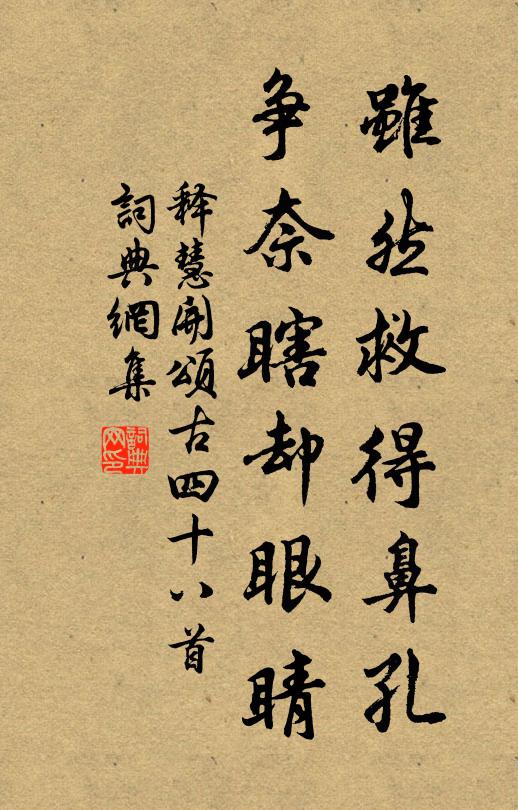 雖然救得鼻孔
争奈瞎却眼睛
释慧開頌古四十八首
詞典網集
詞典网印